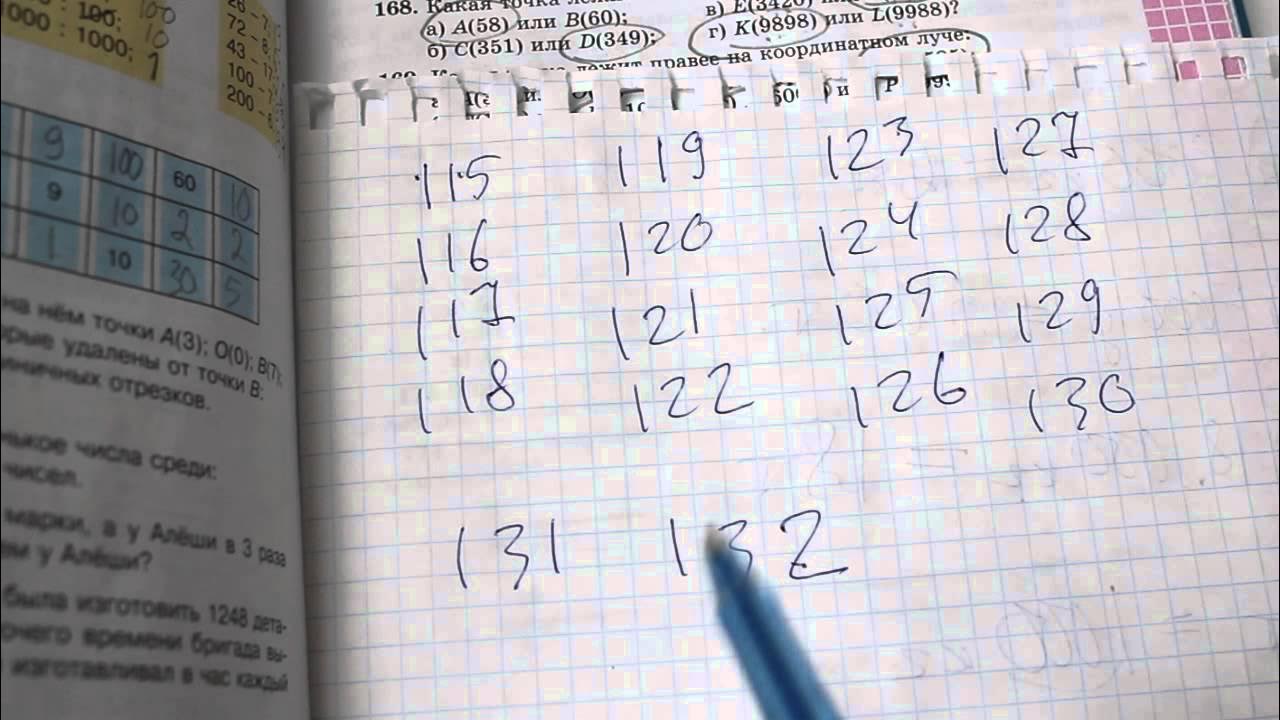 168. Какая точка
а) A(58) или B(60);
б) C(351) или D(349);
в) E(3420)
г) K(9898) или L(9988)?
лежит правее на координатном луче:
100
10
: 1000; 1
26 –
72 –
43 –
100 –
200 –
9 100 60 10
9 10 2 2
1 10 30 5
на нём точки A(3); O(0); B(7);
удалены от точки B:
отрезков.
числа среди:
чисел.
марки, а у Алёши в 3 раза
у Алёши?
была изготовить 1248 дета-
времени бригада вы-
изготавливал в час каждый
115 119 123 127
116 120 124 128
117 121 125 129
118 122 126 130
131 132